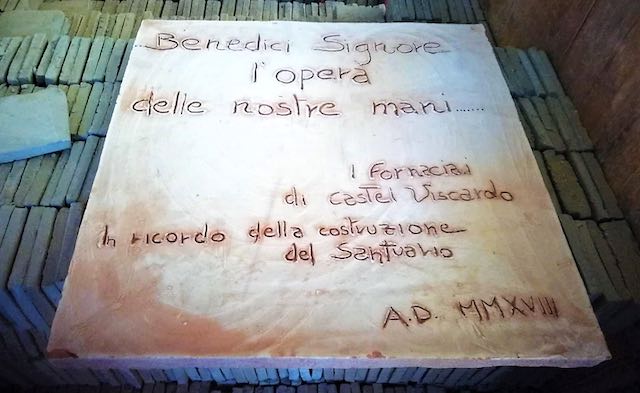 ...Benedici Signore
l'opera
delle nostre mani.......
I Fornaciai
di Castel Viscardo
In ricordo della costruzione
del Santuario
A.D. MMXVIII